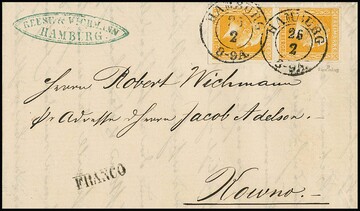 GEESE & WICHMANN
HAMBURG
HAMBURG
26
2
8-9A.
HAMBURG
26
2
8-9A.
Herrn Robert Wichmann
Adresse Herrn Jacob Adelson.
FRANCO
Kowno.